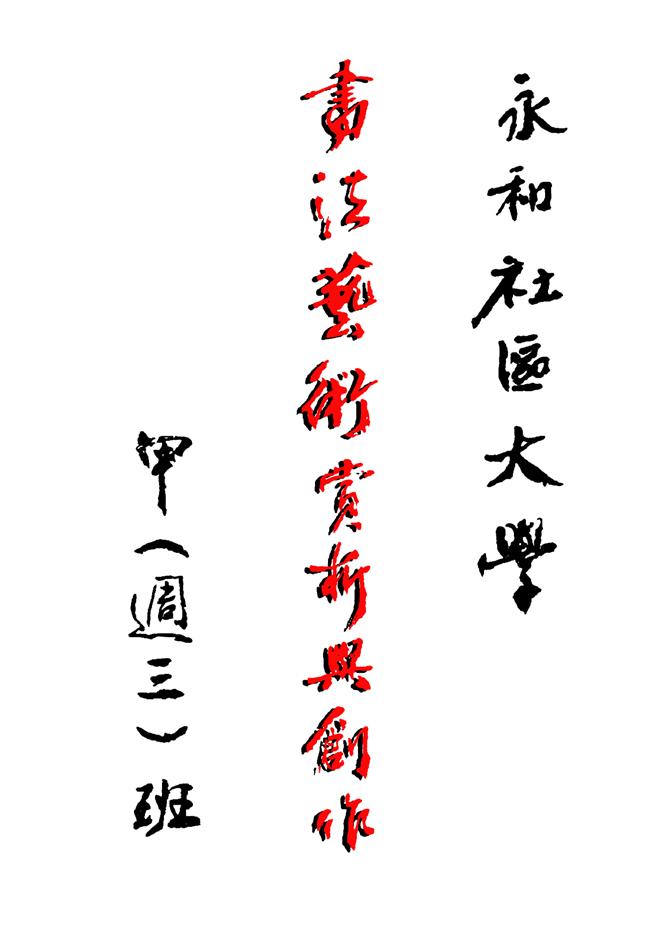 永和社區大學
書法藝術賞析與創作
甲（週三）班